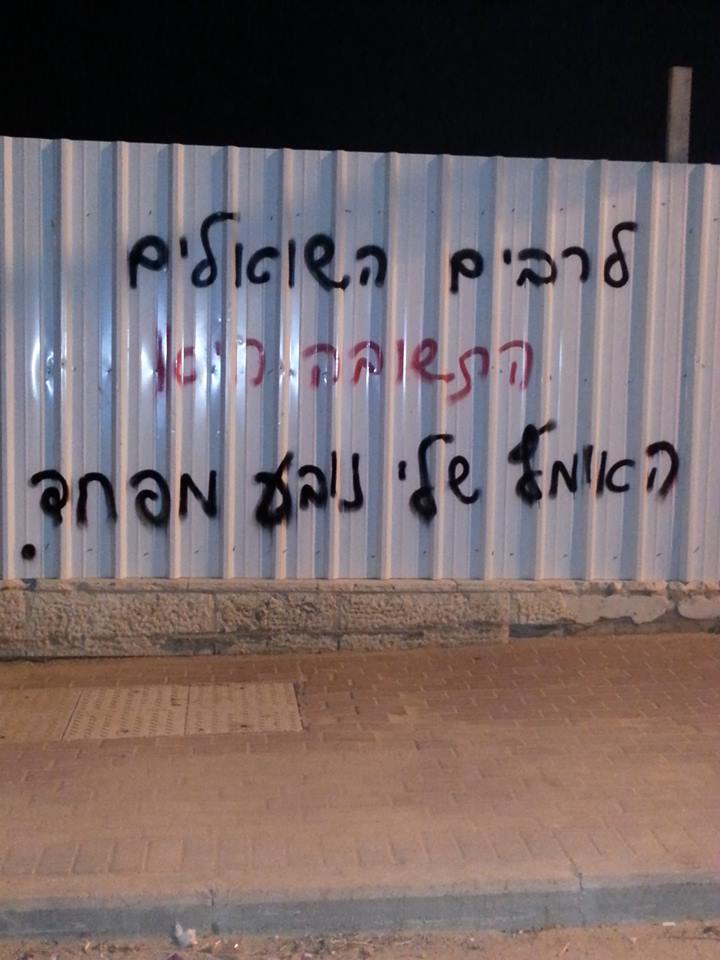 לרבים השואלים
התשובה היא
האומץ שלי נובע מפחד.